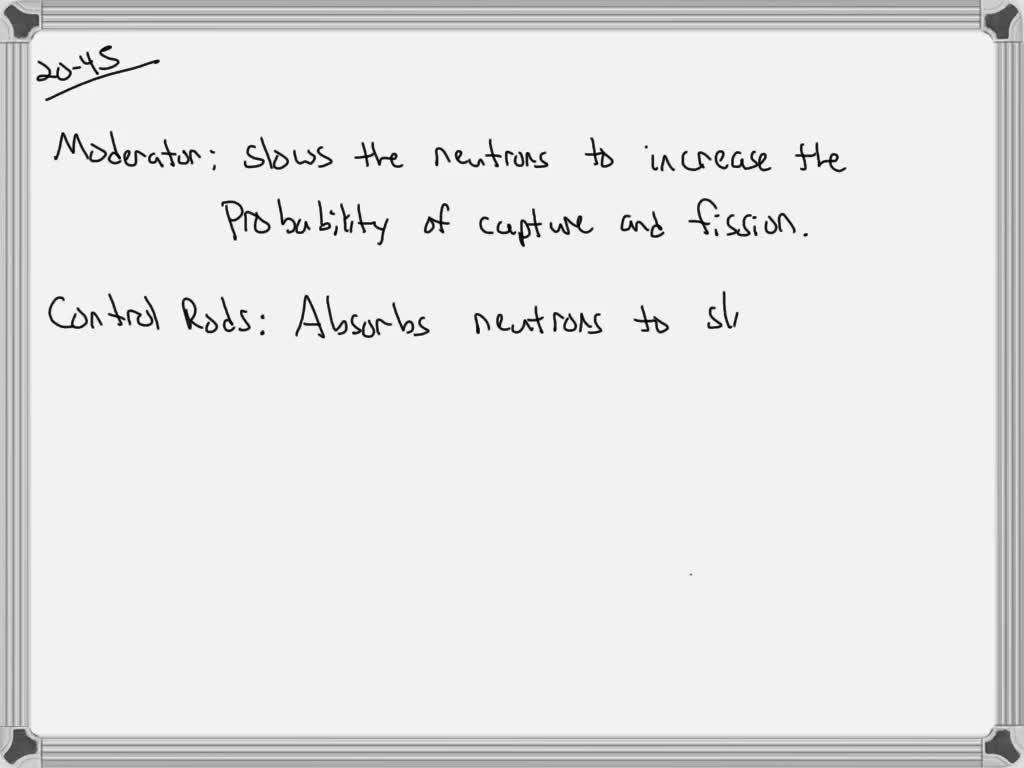 20-45
Moderator: slows the neutrons to increase the
Probability of capture and fission.
Control Rods: Absorbs neutrons to sl